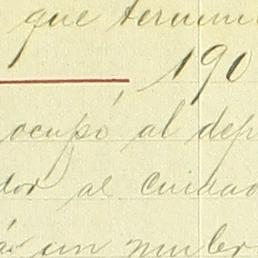 que termin
190
ocupó al dep
dor al cuidad
un muler